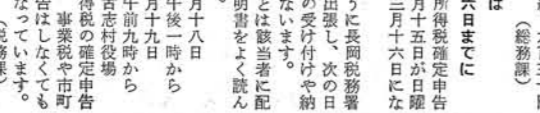 （総務課）
は
六日までに
所得税確定申告
月十五日が日曜
三月十六日にな
うに長岡税務署
出張し、次の日
の受け付けや納
ないます。
とは該当者に配
明書をよく読ん
月十八日
午後一時から
月十九日
午前九時から
古志村役場
得税の確定申告
事業税や市町
告はしなくても
なっています。
税務課）